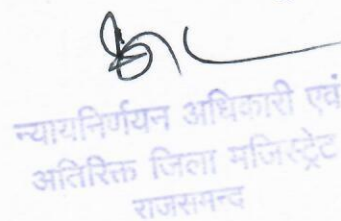 न्यायनिर्णयन अधिकारी एवं
अतिरिक्त जिला मजिस्ट्रेट
राजसमन्द